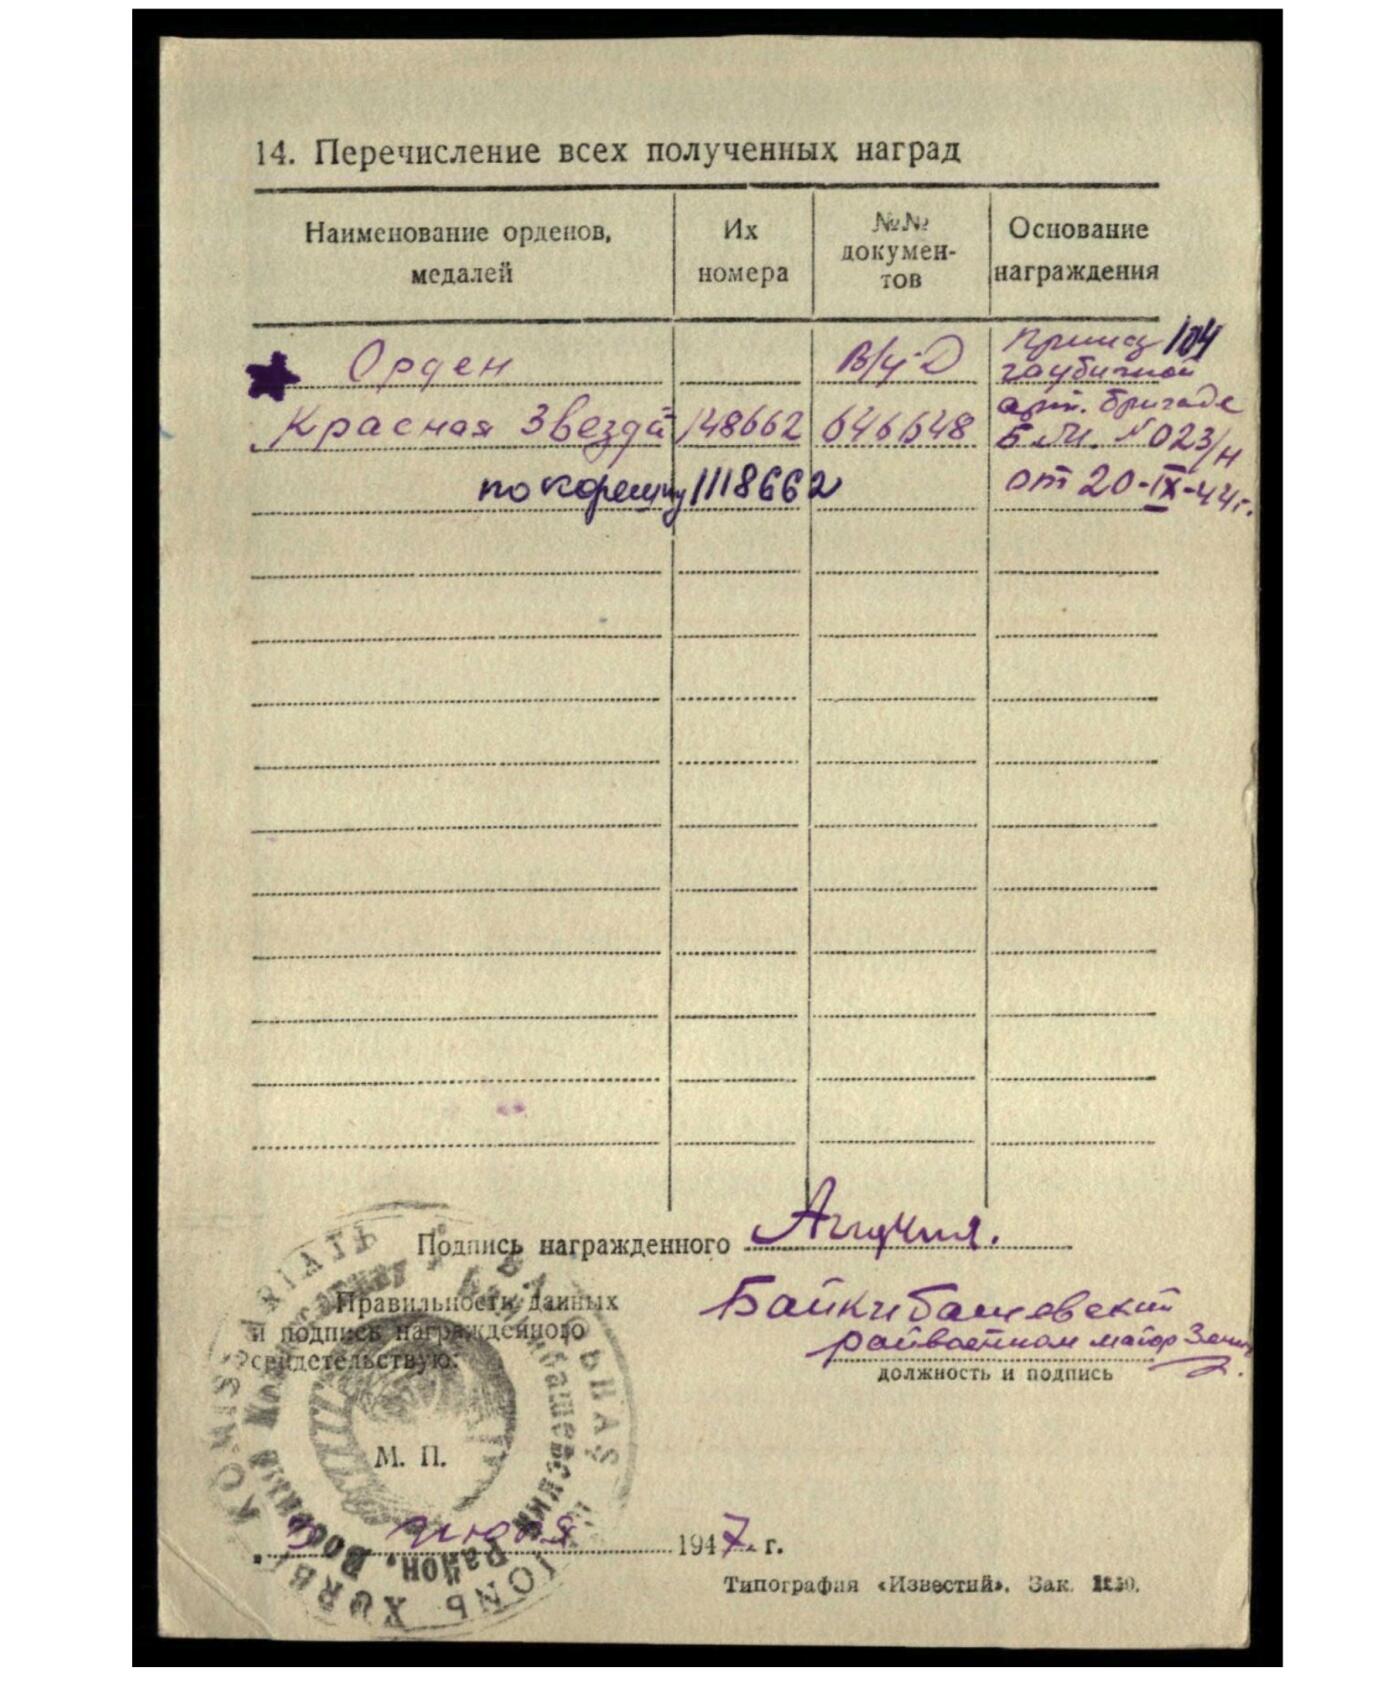 14. Перечисление всех полученных наград
Наименование орденов, медалей
Их номера
№№ докумен-тов
Основание награждения
Орден
В/у-D
Приказ 104
гаубичной
Красная Звезда 148662 646648
арт. бригаде
Б.М. №023/н
по корешку 1118662
от 20-IX-44г.
Подпись награжденного
Правильность данных
и подпись награжденного
свидетельствую:
Байкибашевский
райвоенком майор
должность и подпись
М. П.
июля 1947 г.
Типография «Известий». Зак.